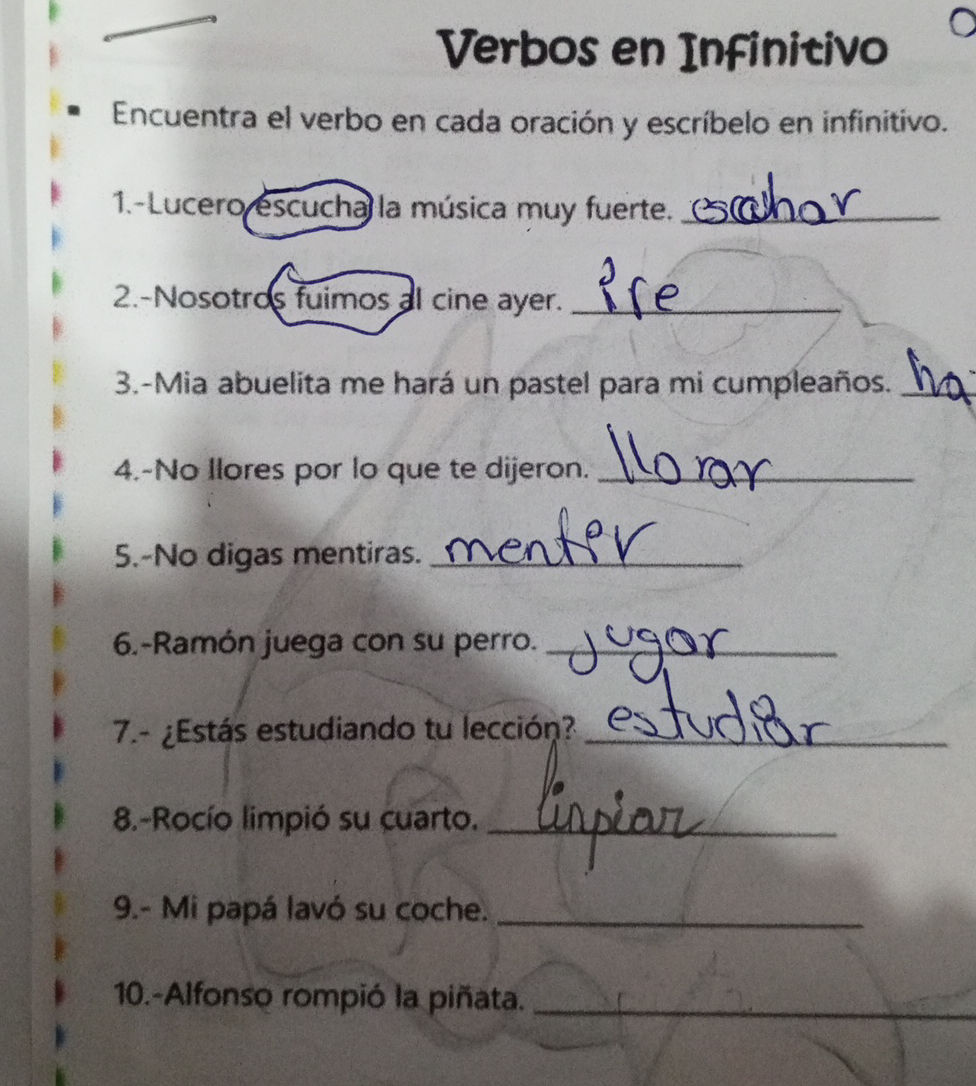 Verbos en Infinitivo
Encuentra el verbo en cada oración y escríbelo en infinitivo.
1.-Lucero escucha la música muy fuerte.
2.-Nosotros fuimos al cine ayer.
3.-Mia abuelita me hará un pastel para mi cumpleaños. ha
4.-No llores por lo que te dijeron. llorar
5.-No digas mentiras. mentir
6.-Ramón juega con su perro. jugar
7.- ¿Estás estudiando tu lección? estudiar
8.-Rocío limpió su cuarto. linpiar
9.- Mi papá lavó su coche.
10.-Alfonso rompió la piñata.